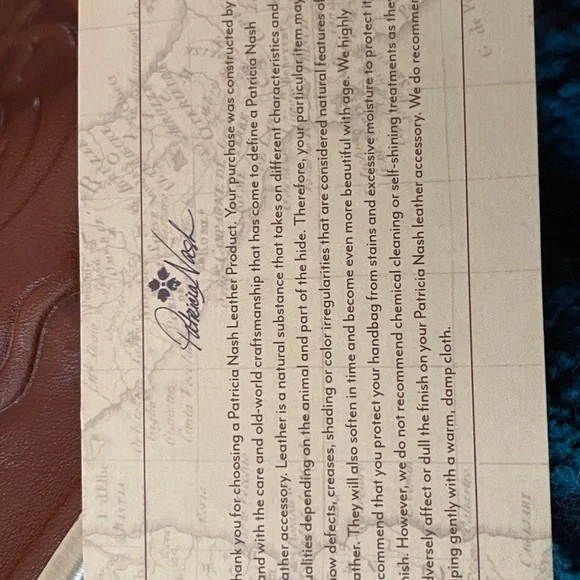 Patricia Nash
hank you for choosing a Patricia Nash Leather Product. Your purchase was constructed by
and with the care and old-world craftsmanship that has come to define a Patricia Nash
ather accessory. Leather is a natural substance that takes on different characteristics and
ualities depending on the animal and part of the hide. Therefore, your particular item may
ow defects, creases, shading or color irregularities that are considered natural features o
ather. They will also soften in time and become even more beautiful with age. We highly
commend that you protect your handbag from stains and excessive moisture to protect it
nish. However, we do not recommend chemical cleaning or self-shining treatments as the
versely affect or dull the finish on your Patricia Nash leather accessory. We do recommen
ping gently with a warm, damp cloth.